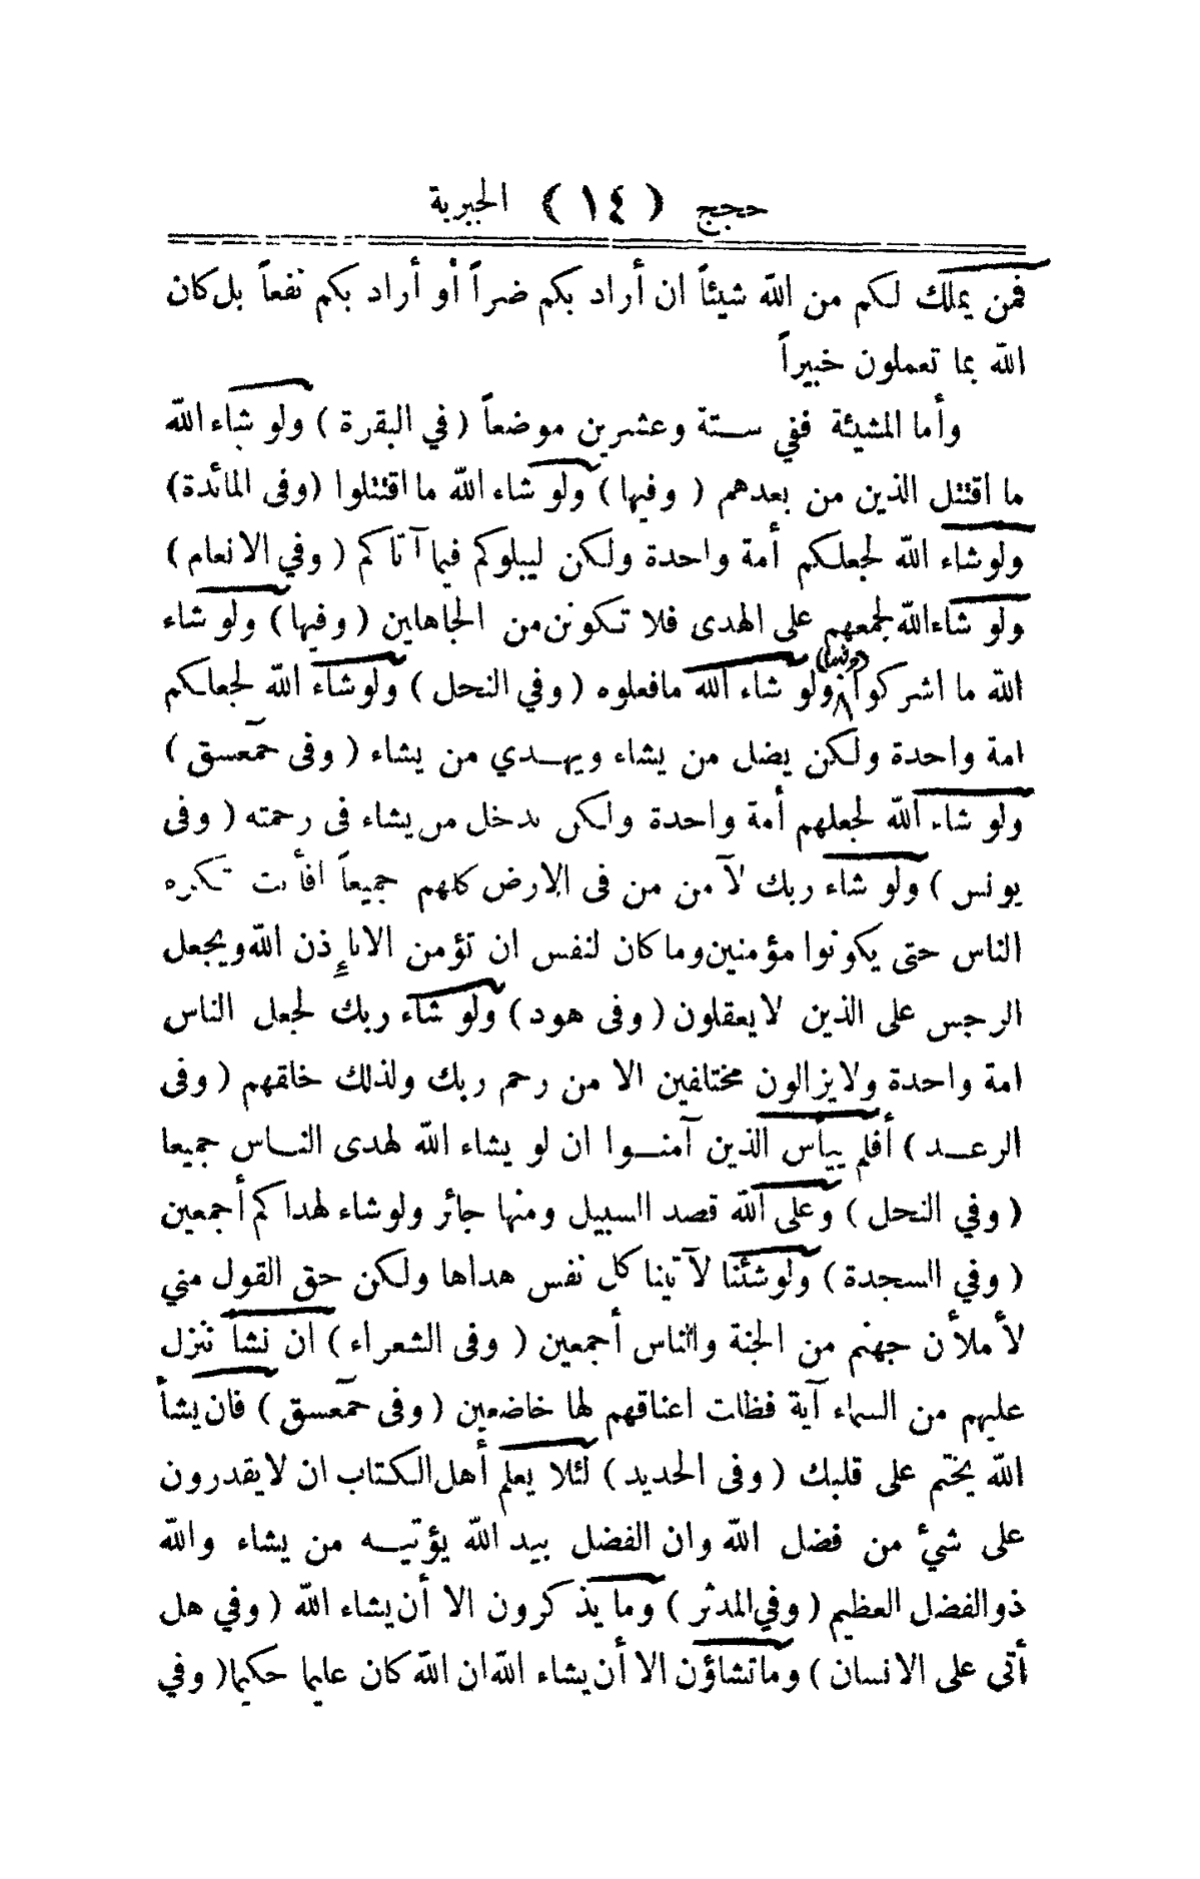 حجج ﴿ ١٤ ﴾ الجبرية
فمن يملك لكم من الله شيئاً ان أراد بكم ضراً أو أراد بكم نفعاً بل كان
الله بما تعملون خبيراً
وأما المشيئة ففي ستة وعشرين موضعاً ( في البقرة ) ولو شاء الله
ما اقتتل الذين من بعدهم ( وفيها ) ولو شاء الله ما اقتتلوا (وفى المائدة)
ولو شاء الله لجعلكم أمة واحدة ولكن ليبلوكم فيما آتاكم ( وفي الانعام )
ولو شاء الله لجمعهم على الهدى فلا تكونن من الجاهلين ( وفيها ) ولو شاء
الله ما اشركوا (وفيها) ولو شاء الله مافعلوه ( وفي النحل ) ولو شاء الله لجعلكم
امة واحدة ولكن يضل من يشاء ويهدي من يشاء ( وفى حمعسق )
ولو شاء الله لجعلهم أمة واحدة ولكن يدخل من يشاء فى رحمته ( وفى
يونس ) ولو شاء ربك لآمن من فى الارض كلهم جميعاً افأنت تكره
الناس حتى يكونوا مؤمنين وما كان لنفس ان تؤمن الا بإذن الله ويجعل
الرجس على الذين لا يعقلون ( وفى هود ) ولو شاء ربك لجعل الناس
امة واحدة ولا يزالون مختلفين الا من رحم ربك ولذلك خلقهم ( وفى
الرعد ) أفلم ييأس الذين آمنوا ان لو يشاء الله لهدى الناس جميعا
( وفي النحل ) وعلى الله قصد السبيل ومنها جائر ولوشاء لهداكم أجمعين
( وفي السجدة ) ولوشئنا لآتينا كل نفس هداها ولكن حق القول مني
لأملأن جهنم من الجنة والناس أجمعين ( وفى الشعراء ) ان نشا ننزل
عليهم من السماء آية فظلت اعناقهم لها خاضعين ( وفى حمعسق ) فان يشأ
الله يختم على قلبك ( وفى الحديد ) لئلا يعلم أهل الكتاب ان لا يقدرون
على شيْ من فضل الله وان الفضل بيد الله يؤتيه من يشاء والله
ذوالفضل العظيم ( وفي المدثر ) وما يذكرون الا أن يشاء الله ( وفي هل
أتى على الانسان ) وماتشاؤن الا أن يشاء الله ان الله كان عليما حكيما ( وفي